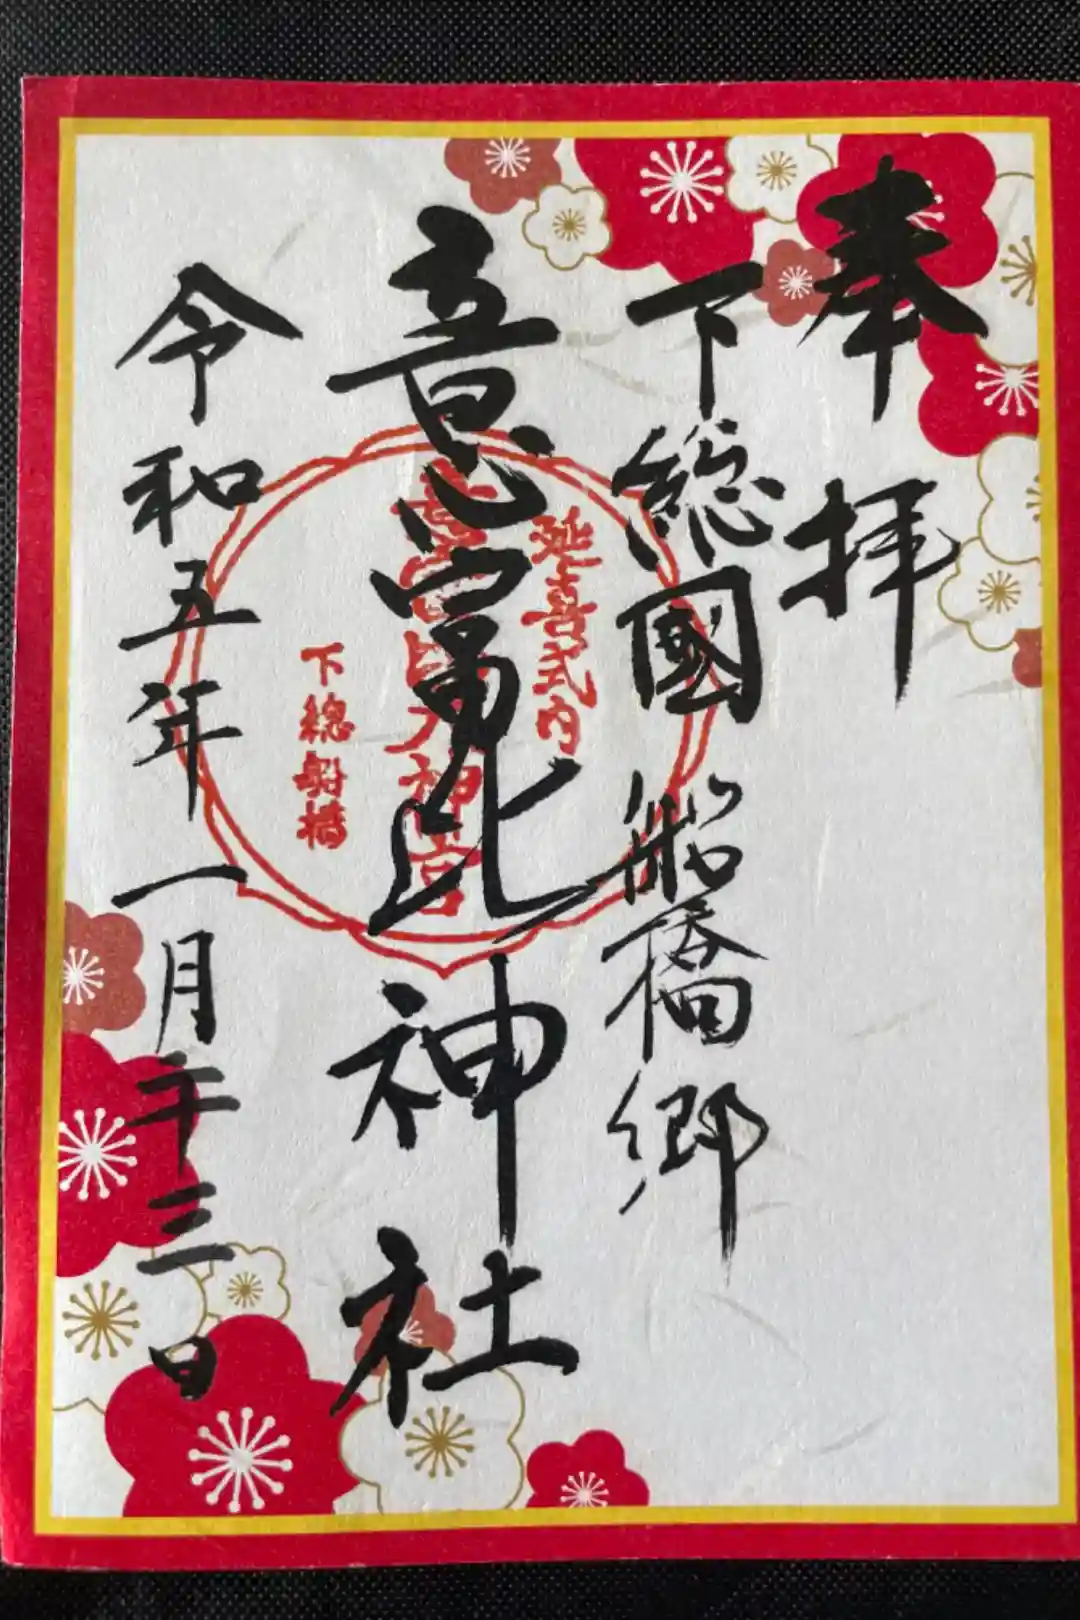 奉拝
下総國船橋郷
意富比神社
令和五年一月十三日
延喜式内
意富比大神宮
下總船橋